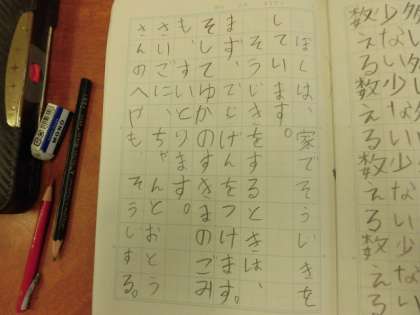 少ない少ない少ない少ない
数える数える数える数える
ぼくは、家でそうじきを
しています。
そうじきをするときは、
まず、でんげんをつけます。
そして、ゆかのすきまのごみ
も、すいとります。
さいごに、ちゃんとおとう
さんのへやもそうじする。
MONO